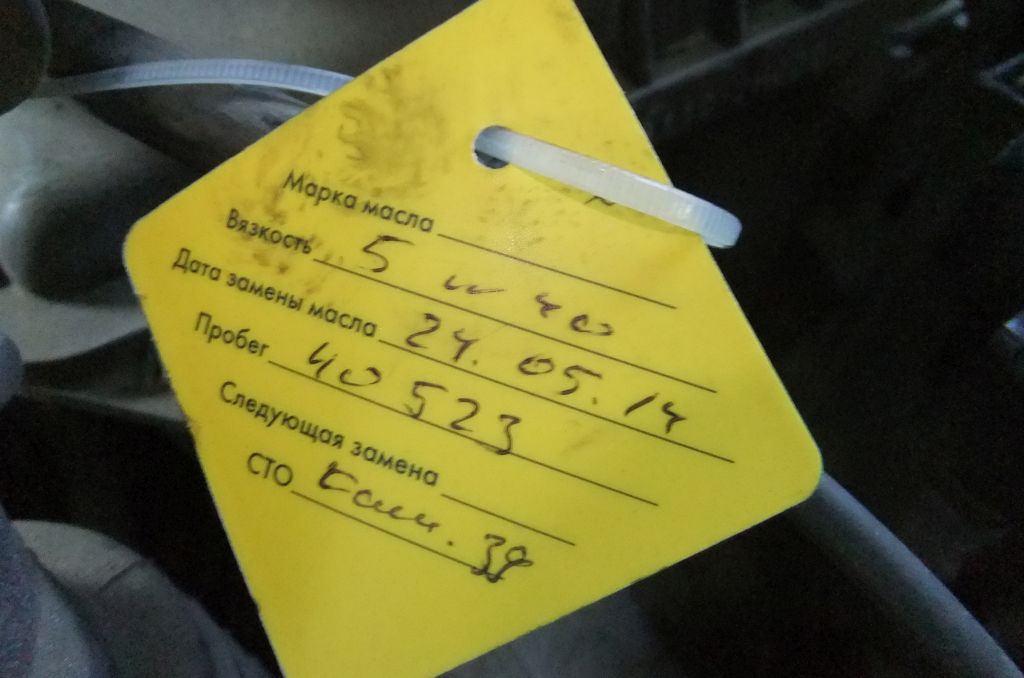 Марка масла
Вязкость 5 w 40
Дата замены масла 24.05.14
Пробег 40 523
Следующая замена
СТО